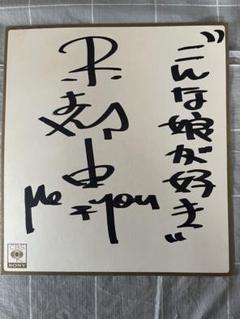 “こんな娘が好き”
由
Me & you
CBS
SONY